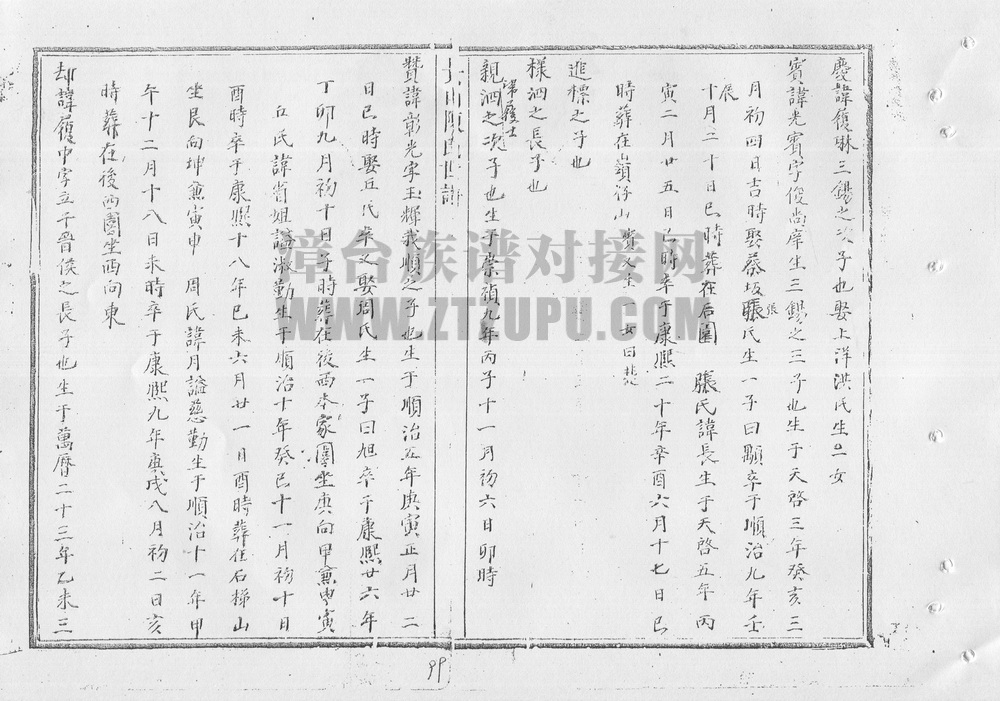 慶諱復琳三錫之次子也娶上洋洪氏生二女
賓諱光賓字俊尚庠生三錫之三子也生于天啓三年癸亥三
月初四日吉時娶蔡坂張氏生一子曰顯卒于順治九年壬
辰十月二十日巳時葬在后園 張氏諱長生于天啓五年丙
寅二月廿五日 時卒于康熙二十年辛酉六月十七日巳
時葬在 山 賓又生一女曰
進標之子也
樣泗之長子也
親泗之次子也生于崇禎九年丙子十一月初六日卯時
陳氏世譜
贊諱彰光字玉輝我順之子也生于順治五年庚寅正月廿二
日巳時娶丘氏卒又娶周氏生一子曰旭卒于康熙廿六年
丁卯九月初十日子時葬在後西本家園坐庚向甲兼申寅
丘氏諱省姐謚淑勤生于順治十年癸巳十一月初十日
酉時卒于康熙十八年己未六月廿一日酉時葬在石梯山
坐艮向坤兼寅申 周氏諱月謚慈勤生于順治十一年甲
午十二月十八日未時卒于康熙九年庚戌八月初二日亥
時葬在後西園坐西向東
却諱復中字立于晉侯之長子也生于萬曆二十三年乙未三
99
章台族谱对接网
WWW.ZTZUPU.COM